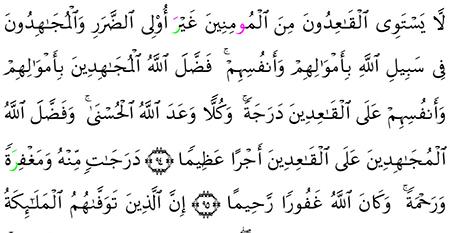 لَّا يَسْتَوِى ٱلْقَٰعِدُونَ مِنَ ٱلْمُومِنِينَ غَيْرَ أُوْلِى ٱلضَّرَرِ وَٱلْمُجَٰهِدُونَ
فِى سَبِيلِ ٱللَّهِ بِأَمْوَٰلِهِمْ وَأَنفُسِهِمْۚ فَضَّلَ ٱللَّهُ ٱلْمُجَٰهِدِينَ بِأَمْوَٰلِهِمْ
وَأَنفُسِهِمْ عَلَى ٱلْقَٰعِدِينَ دَرَجَةًۚ وَكُلًّا وَعَدَ ٱللَّهُ ٱلْحُسْنَىٰۚ وَفَضَّلَ ٱللَّهُ
ٱلْمُجَٰهِدِينَ عَلَى ٱلْقَٰعِدِينَ أَجْرًا عَظِيمًا ﴿٩٤﴾ دَرَجَٰتٍ مِّنْهُ وَمَغْفِرَةً
وَرَحْمَةًۚ وَكَانَ ٱللَّهُ غَفُورًا رَّحِيمًا ﴿٩٥﴾ إِنَّ ٱلَّذِينَ تَوَفَّىٰهُمُ ٱلْمَلَٰٓئِكَةُ